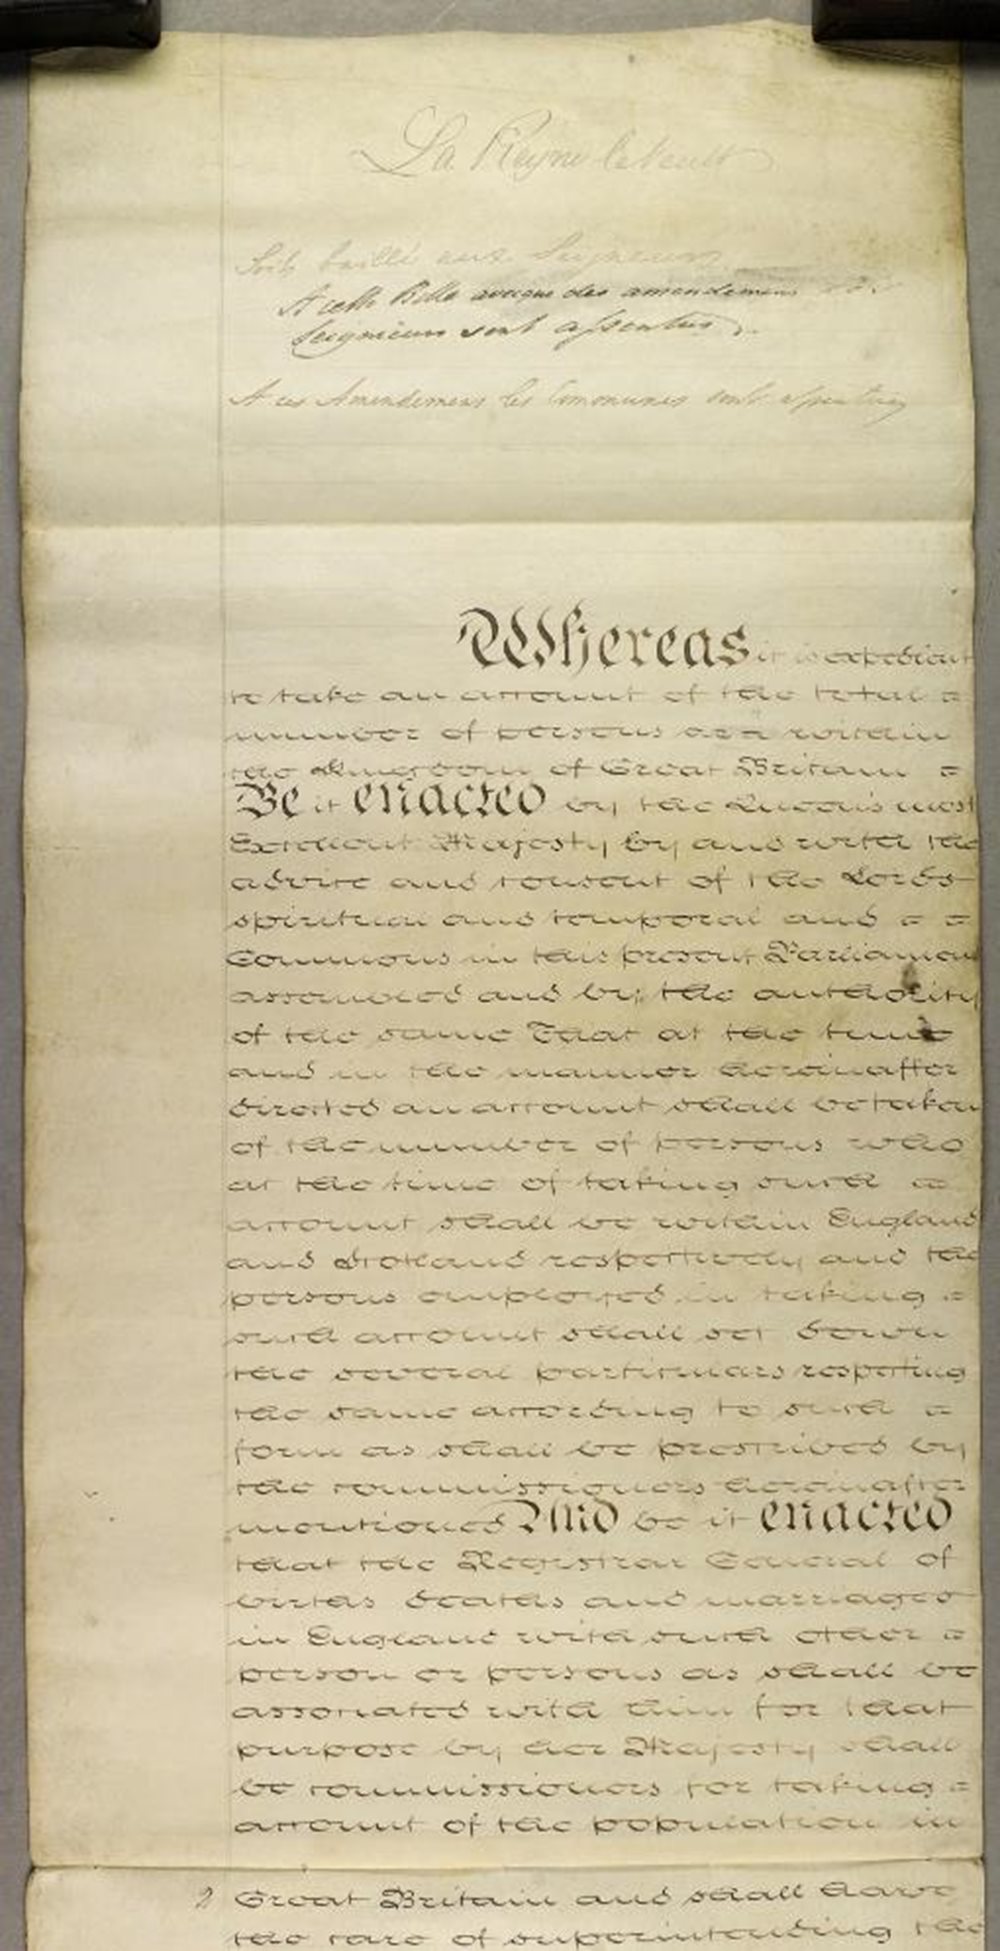 La Reyne le veult
Soit baillé aux Seigneurs
A cette Bille avecque des amendemens
Seigneurs sont assentus
A ces Amendemens les Communes sont assentus
Whereas it is expedient
to take an account of the total =
number of persons within
the Kingdom of Great Britain =
Be it enacted by the Queen's most
Excellent Majesty by and with the
advice and consent of the Lords
spiritual and temporal and = =
Commons in this present Parliament
assembled and by the authority
of the same That at the time
and in the manner hereinafter
directed an account shall be taken
of the number of persons who
at the time of taking such =
account shall be within England
and Scotland respectively and the
persons employed in taking =
such account shall set down
the several particulars respecting
the same according to such =
form as shall be prescribed by
the commissioners hereinafter
mentioned And be it enacted
that the Registrar General of
births deaths and marriages
in England with such other =
person or persons as shall be
associated with him for that
purpose by her Majesty shall
be commissioners for taking =
account of the population in
2 Great Britain and shall have
the care of superintending the